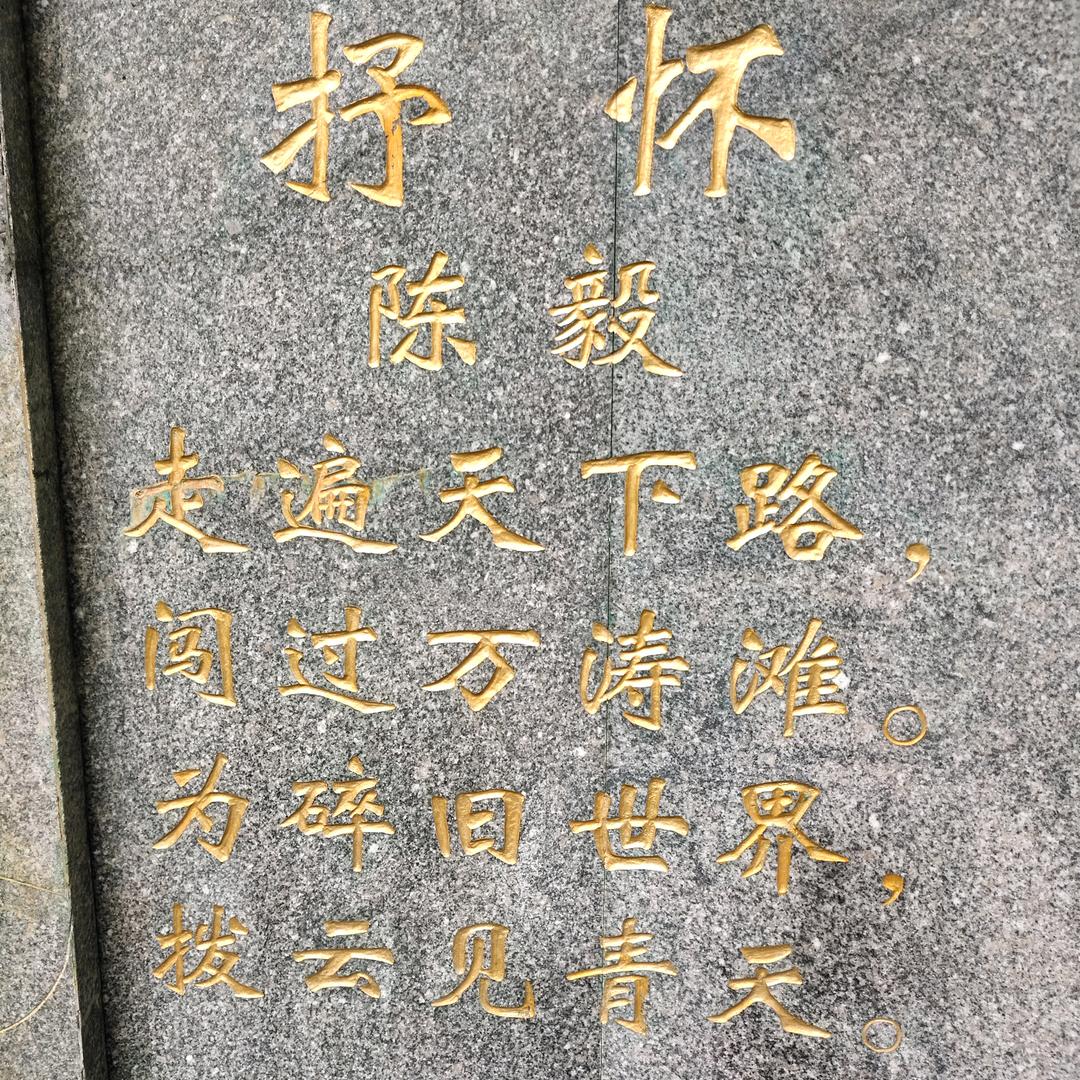 抒怀
陈毅
走遍天下路，
闯过万涛滩。
为碎旧世界，
拨云见青天。